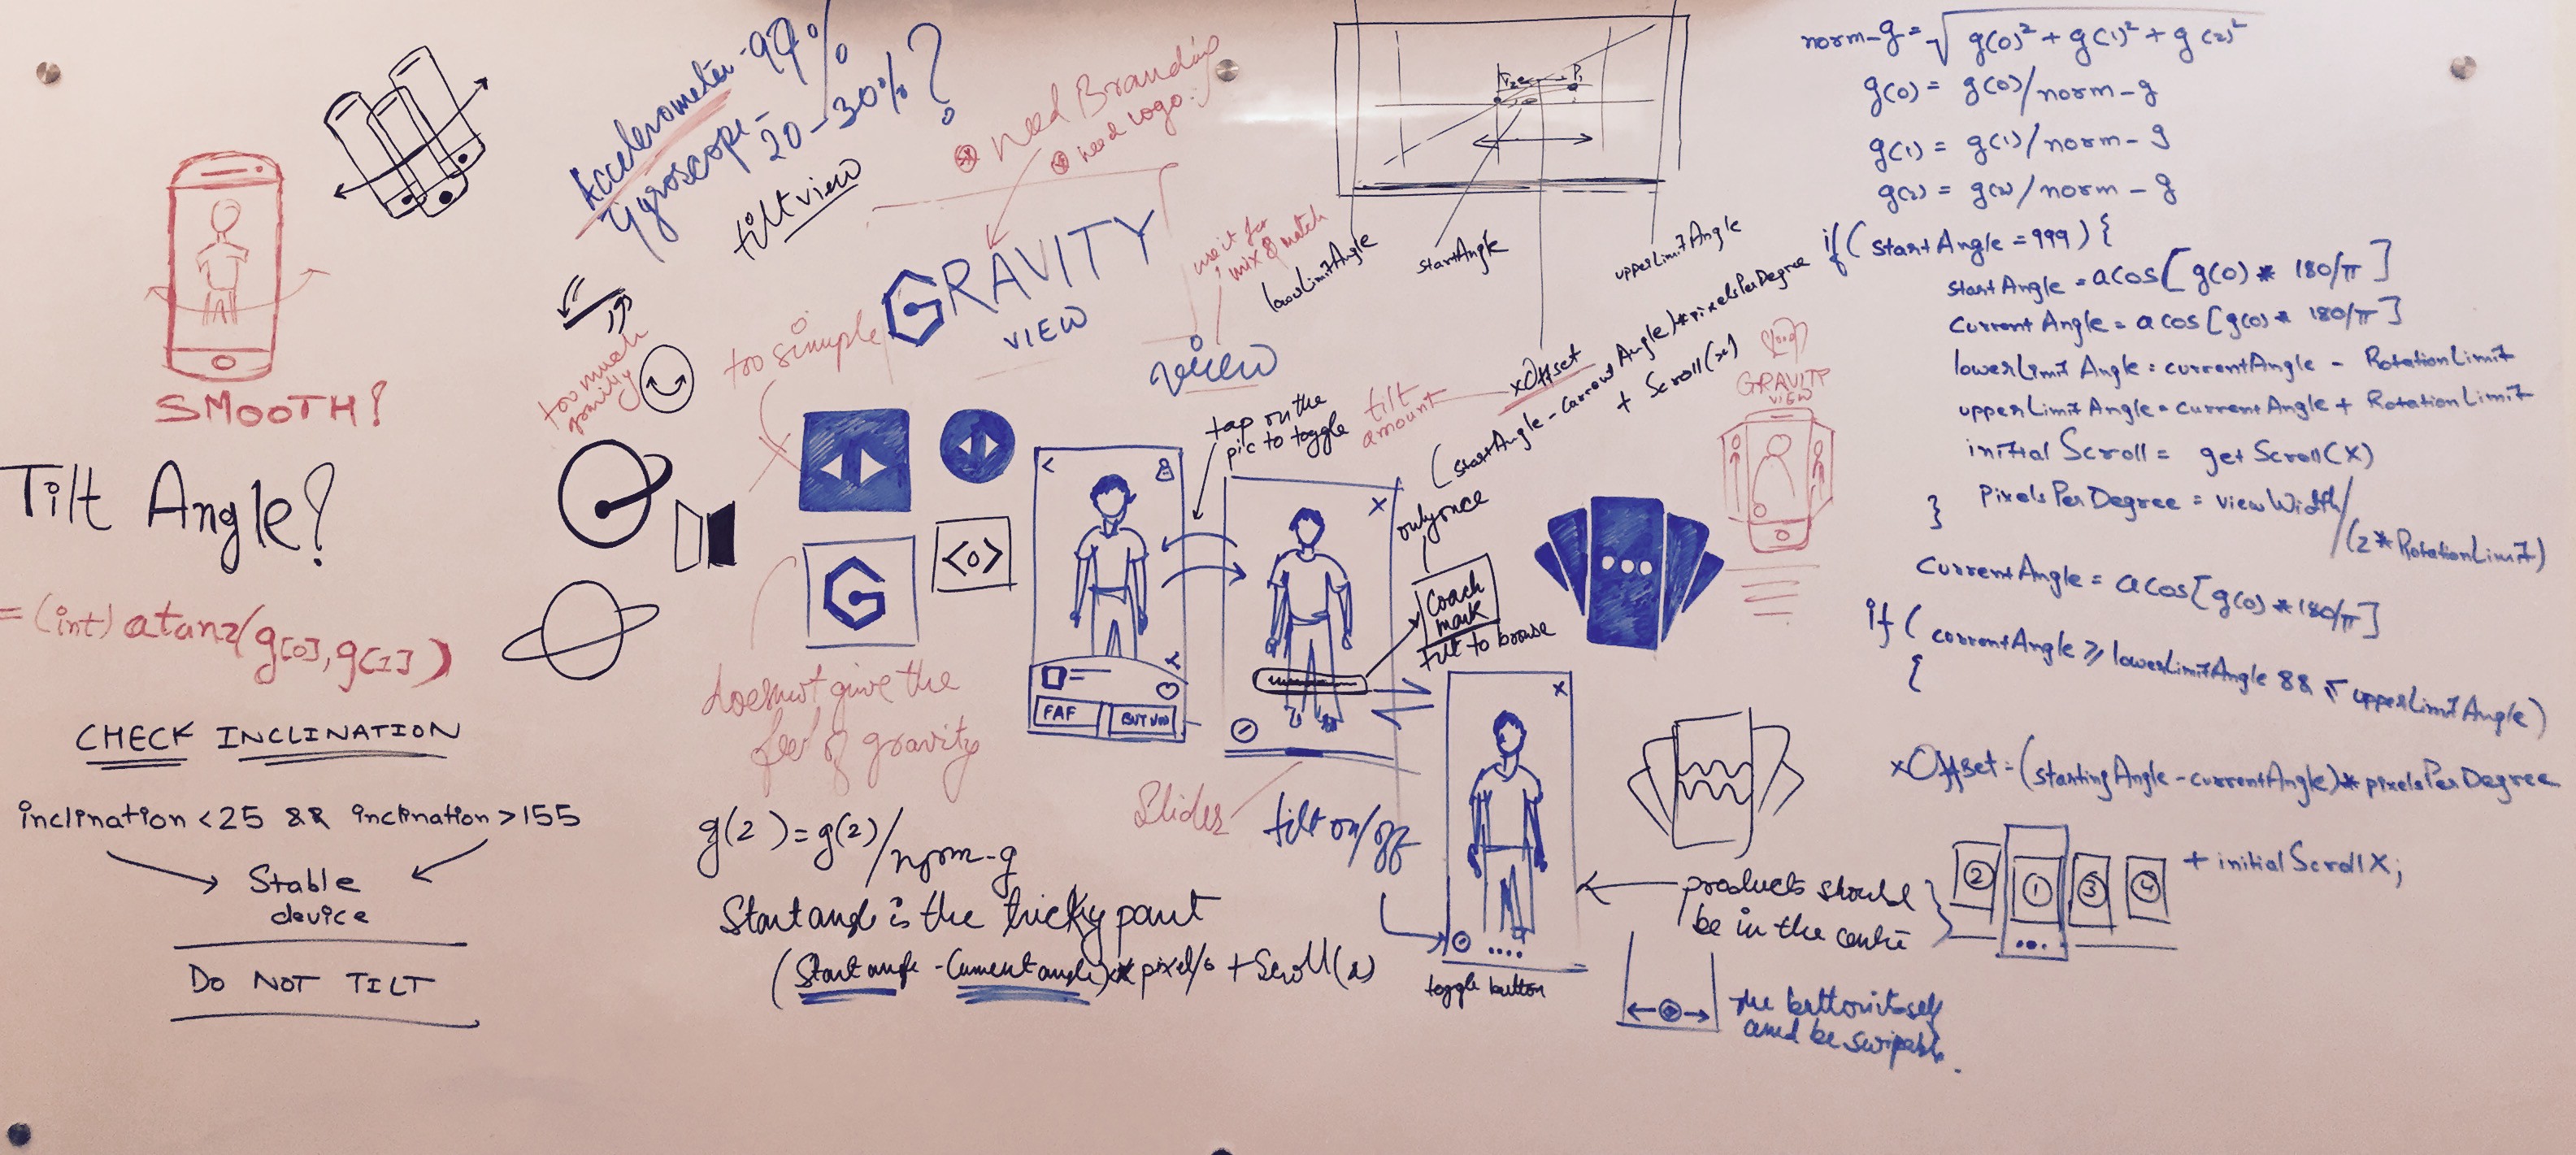 SMOOTH?
Tilt Angle?
= (int) atan2(g[0], g[1])
CHECK INCLINATION
inclination < 25 && inclination > 155
Stable
device
DO NOT TILT
Accelerometer - 99%
Gyroscope - 20-30%?
tilt view
need Branding
need Logo
GRAVITY
VIEW
too much
gravity
too simple
use it for
mix & match
view
G
<o>
does not give the
feel of gravity
tap on the
pic to toggle
FAF
BUY NOW
Slider
only once
Coach
mark
Tilt to browse
tilt on/off
toggle button
g(2) = g(2)/norm-g
Start angle is the tricky part
(Start angle - Current angle) * pixel/° + Scroll(x)
P1
lowerLimitAngle
startAngle
upperLimitAngle
xOffset
tilt
amount
(startAngle - currentAngle) * pixelsPerDegree
+ Scroll(x)
GRAVITY
VIEW
products should
be in the centre
2 1 3 4
the button itself
be swipable.
norm-g = √g(0)² + g(1)² + g(2)²
g(0) = g(0)/norm-g
g(1) = g(1)/norm-g
g(2) = g(2)/norm-g
if (startAngle = 999) {
startAngle = acos[g(0) * 180/π]
currentAngle = acos[g(0) * 180/π]
lowerLimitAngle = currentAngle - RotationLimit
upperLimitAngle = currentAngle + RotationLimit
initial Scroll = getScroll(X)
pixelsPerDegree = viewWidth/(2*RotationLimit)
}
currentAngle = acos[g(0) * 180/π]
if (currentAngle ≥ lowerLimitAngle && ≤ upperLimitAngle)
{
xOffset = (startingAngle - currentAngle) * pixelsPerDegree
+ initialScrollX;